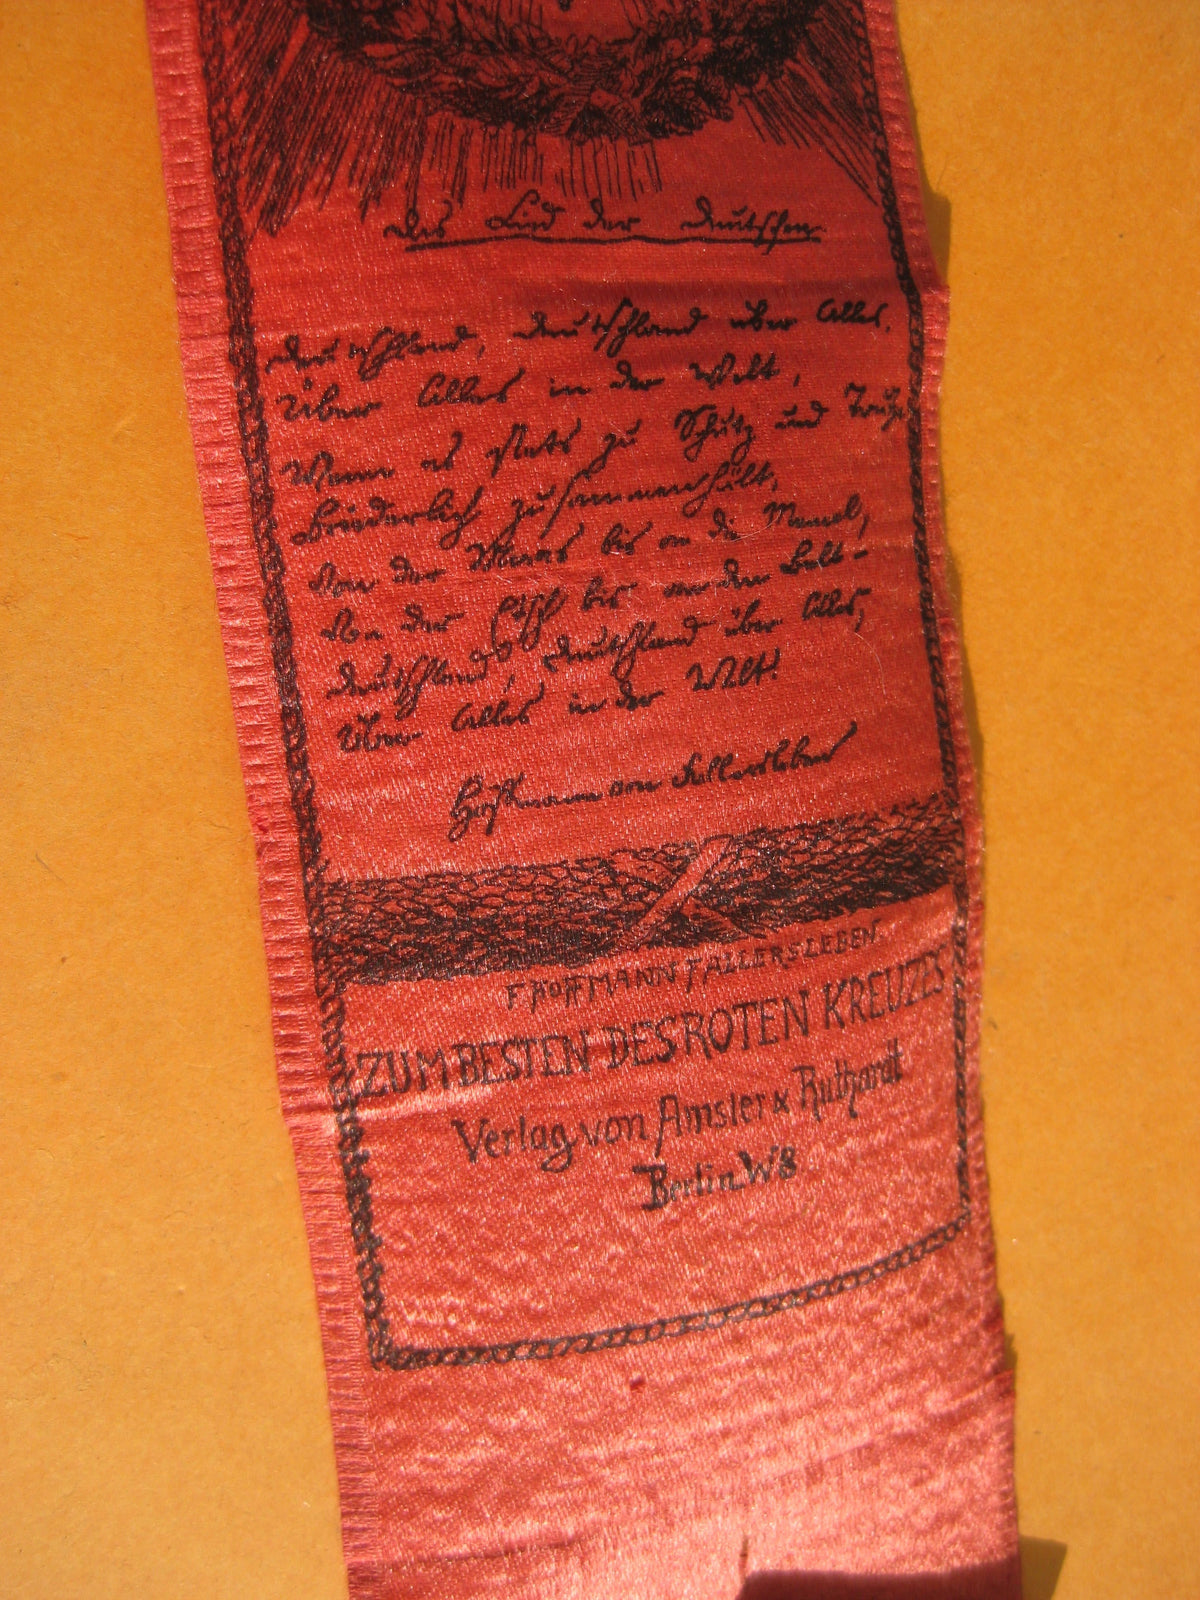 Das Lied der Deutschen
Deutschland, Deutschland über Alles,
Über Alles in der Welt,
Wenn es stets zu Schutz und Trutze
Brüderlich zusammenhält,
Von der Maas bis an die Memel,
Von der Etsch bis an den Belt –
Deutschland, Deutschland über Alles,
Über Alles in der Welt!
Hoffmann von Fallersleben
F HOFFMANN FALLERSLEBEN
ZUM BESTEN DES ROTEN KREUZES
Verlag von Amsler & Ruthardt
Berlin W8